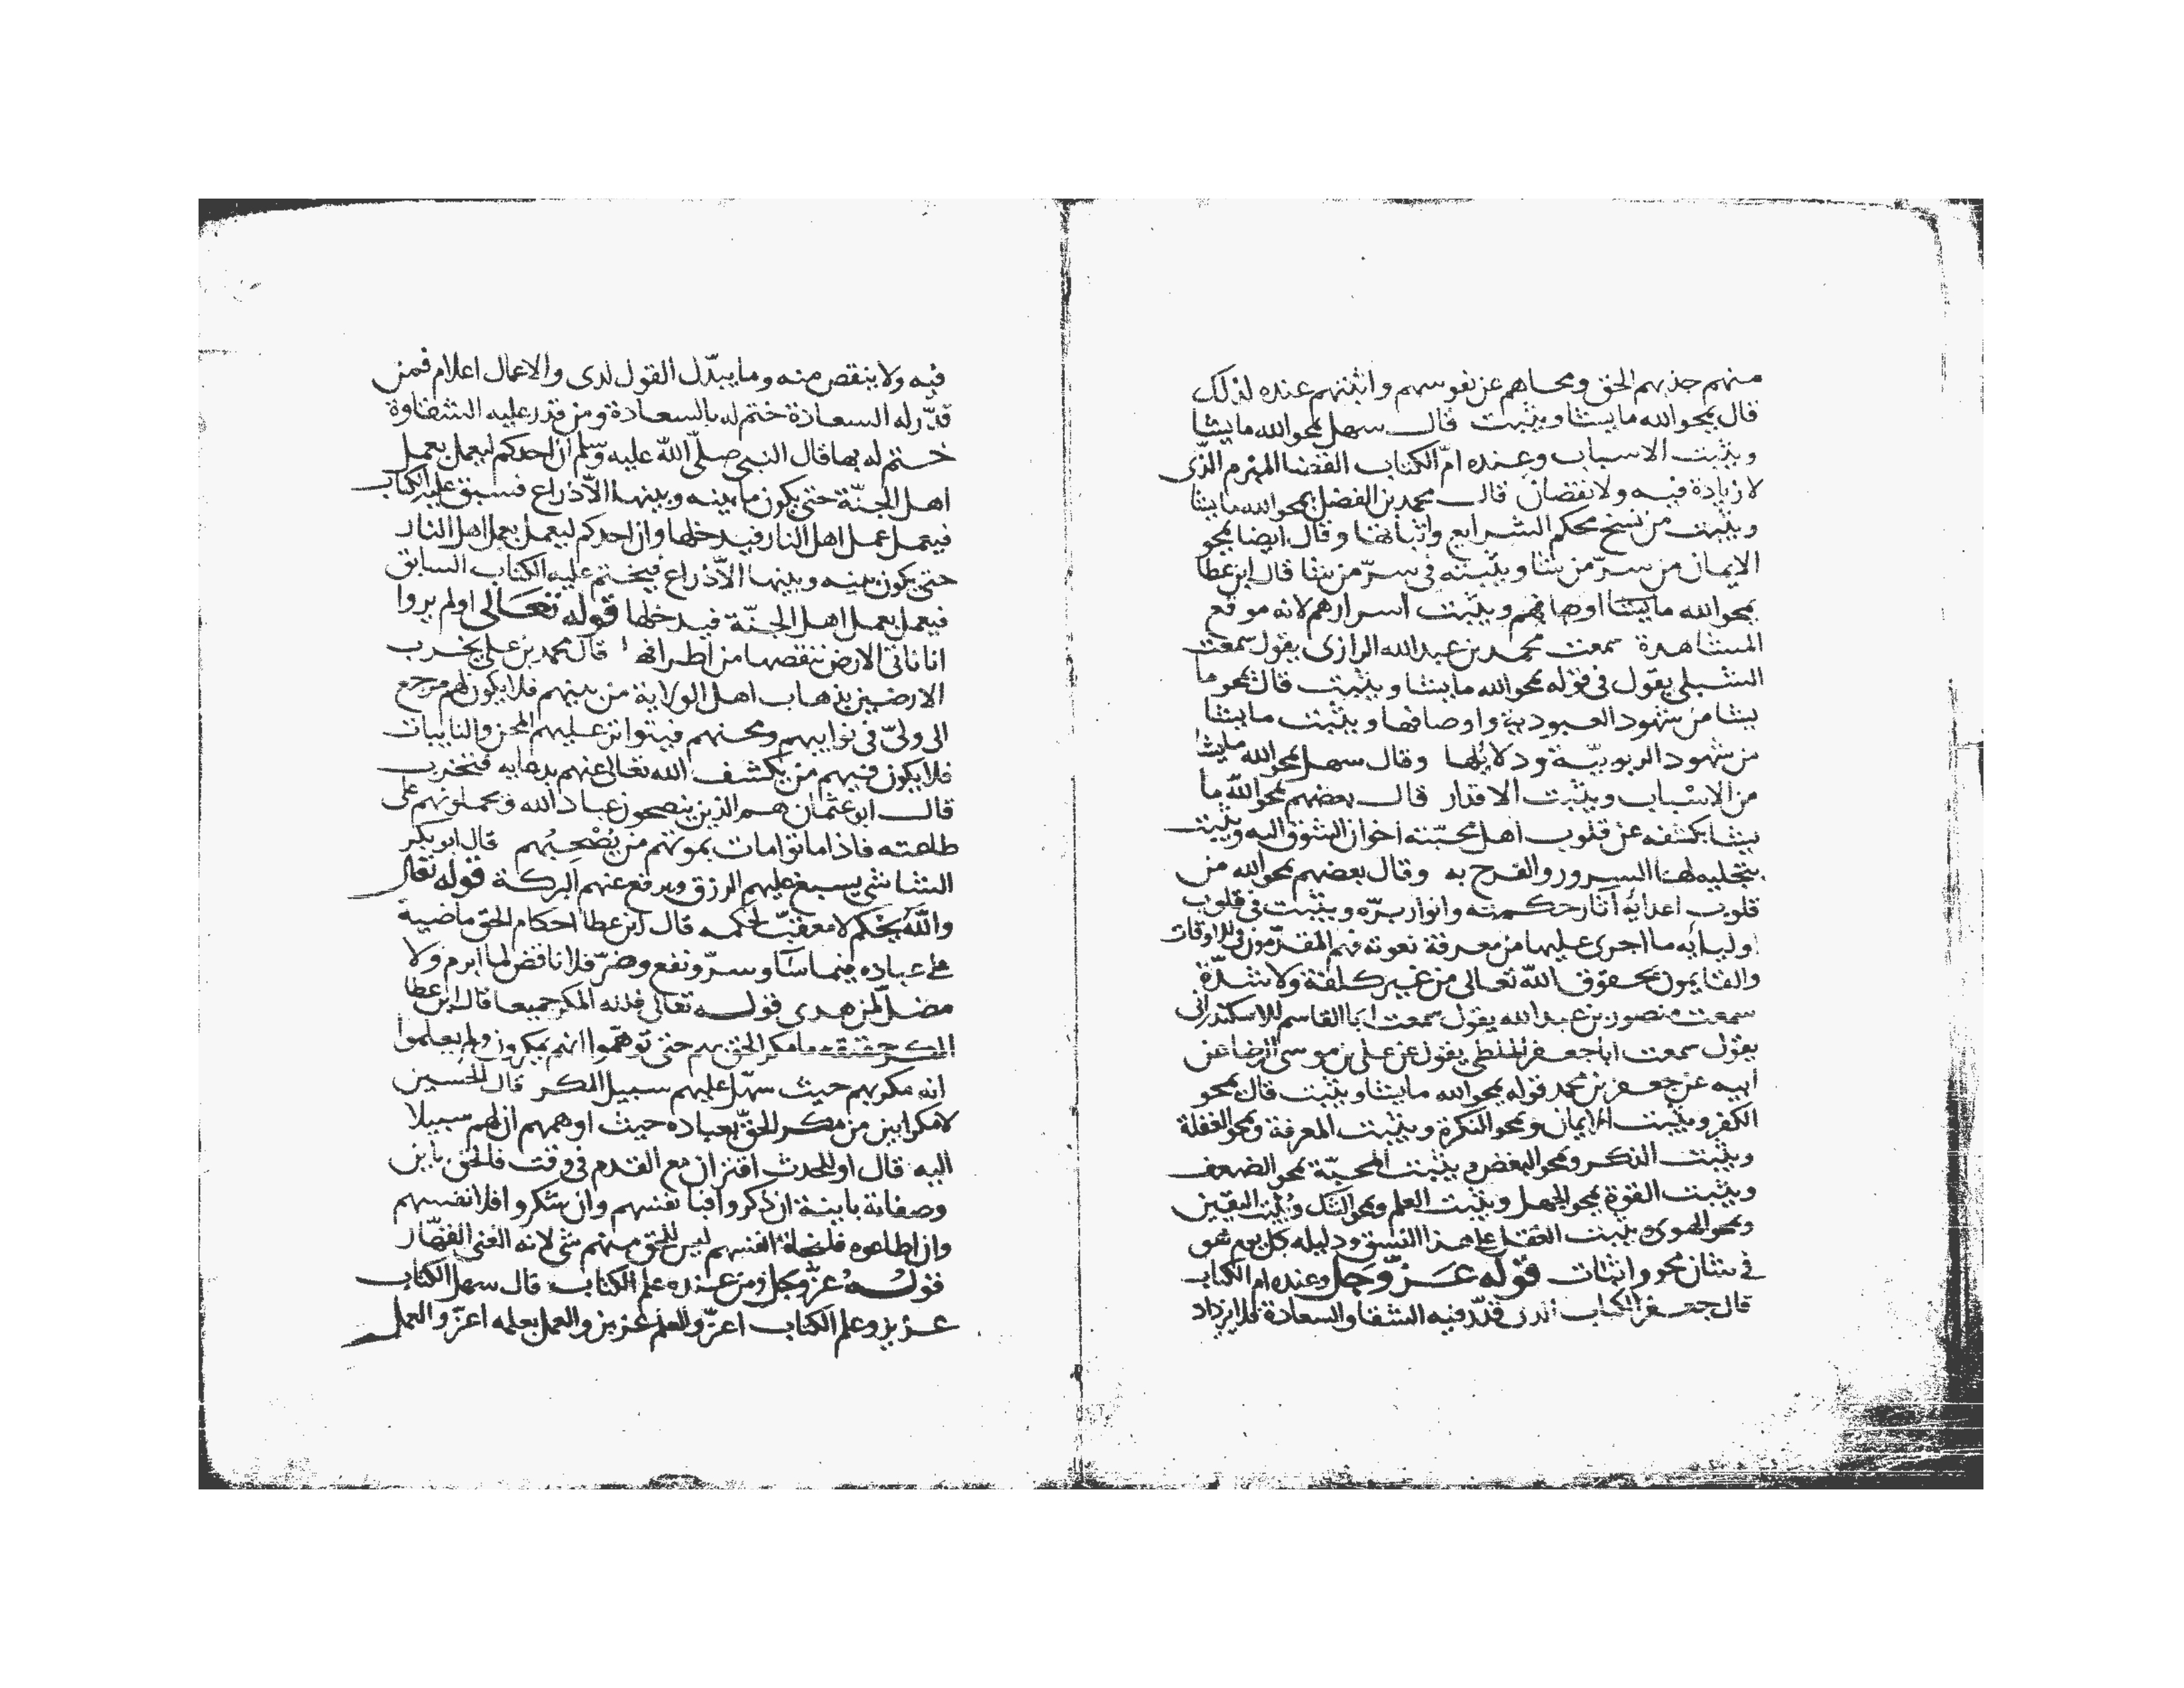 منهم جذبهم الحق ومحاهم عن نفوسهم واثبتهم عنده لذلك
قال يمحو الله ما يشا ويثبت قال سهل يمحو الله ما يشا
ويثبت الاسباب وعنده امّ الكتاب القضا المبرم الذى
لا زيادة فيه ولا نقصان قال محمد بن الفضل يمحو الله ما يشا
ويثبت من نسخ محكم الشرايع واثباتها وقال ايضا يمحو
الايمان من سرّ من يشا ويثبته فى سرّ من يشا قال ابن عطا
يمحو الله ما يشا اوصافهم ويثبت اسرارهم لانه موقع
المشاهدة سمعت محمد بن عبد الله الرازى يقول سمعت
الشبلى يقول فى قوله يمحو الله ما يشا ويثبت قال يمحو ما
يشا من شهود العبودية واوصافها ويثبت ما يشا
من شهود الربوبيّة ودلايلها وقال سهل يمحو الله ما يشا
من الاسباب ويثبت الاقدار قال بعضهم يمحو الله ما
يشا يكشفه عن قلوب اهل محبّته احوان الشوق اليه ويثبت
بتجليه لهنا السرور والفرح به وقال بعضهم يمحو الله من
قلوب اعدايه آثار حكمته وانوار برّه ويثبت فى قلوب
اوليايه ما اجرى عليها من معرفة نعوته فهم المقدّمون فى الاوقات
والقايمون بحقوق الله تعالى من غير كلفة ولا شدّة
سمعت منصور بن عبد الله يقول سمعت ابا القاسم الاسكندرانى
يقول سمعت ابا جعفر الملطى يقول عن على بن موسى الرضا عن
ابيه عن جعفر بن محمد قوله يمحو الله ما يشا ويثبت قال يمحو
الكفر ويثبت الايمان ويمحو النكرة ويثبت المعرفة ويمحو الغفلة
ويثبت الذكر ويمحو البغض ويثبت المحبّة يمحو الضعف
ويثبت القوة يمحو الجهل ويثبت العلم ويمحو الشك ويثبت اليقين
ويمحو الهوى ويثبت العقل على هذا النسق ودليله كل يوم هو
فى شان محو واثبات قوله عزّ وجل وعنده ام الكتاب
قال جعفر الكتاب الذى قدّر فيه الشقا والسعادة فلا يزداد
فيه ولا ينقص منه وما يبدّل القول لدى والاعمال اعلام فمن
قدّر له السعادة ختم له بالسعادة ومن قدر عليه الشقاوة
ختم له بها قال النبى صلّى الله عليه وسلم ان احدكم ليعمل بعمل
اهل الجنّة حتى يكون ما بينه وبينها الاّ ذراع فسبق عليه الكتاب
فيعمل عمل اهل النار فيدخلها وان احدكم ليعمل بعمل اهل النار
حتى يكون بينه وبينها الاّ ذراع فيختم عليه الكتاب السابق
فيعمل بعمل اهل الجنّة فيدخلها قوله تعالى اولم يروا
انا ناتى الارض ننقصها من اطرافها قال محمد بن على يخرب
الارضين بذهاب اهل الولاية من بينهم فلا يكون لهم مرجع
الى ولىّ فى نوايبهم ومحنهم فيتواتر عليهم المحن والنايبات
فلا يكون فيهم من يكشف الله تعالى عنهم بدعايه فتخرب
قال ابو عثمان هم الذين ينصحون عباد الله ويحملونهم على
طاعته فاذا ماتوا مات بموتهم من يُصْحِبُهم قال ابو بكر
الشاشى يسبغ عليهم الرزق ويرفع عنهم البركة قوله تعالى
والله يحكم لا معقبّ لحكمه قال ابن عطا احكام الحق ماضية
على عباده فيما سآء وسرّ ونفع وضرّ فلا ناقض لما ابرم ولا
مضلّ لمن هدى قوله تعالى فلله المكر جميعا قال ابن عطا
المكر حقيقه ما مكر الحق بهم حتى توهّموا انهم يمكرون ولم يعلموا
انه مكر بهم حيث سهّل عليهم سبيل المكر قال الحسين
لا مكر ابين من مكر الحق بعباده حيث اوهمهم ان لهم سبيلا
اليه قال او للحدث اقتران مع القدم فى وقت فالحق باين
وصفاته باينة ان ذكروا فبانفسهم وان شكروا فلانفسهم
وان اطاعوه فلنجاة انفسهم ليس للحق منهم شى لانه الغنى القهّار
قوله عزّ وجل ومن عنده علم الكتاب قال سهل الكتاب
عزيز وعلم الكتاب اعزّ والعلم عزيز والعمل بعلمه اعزّ والعمل